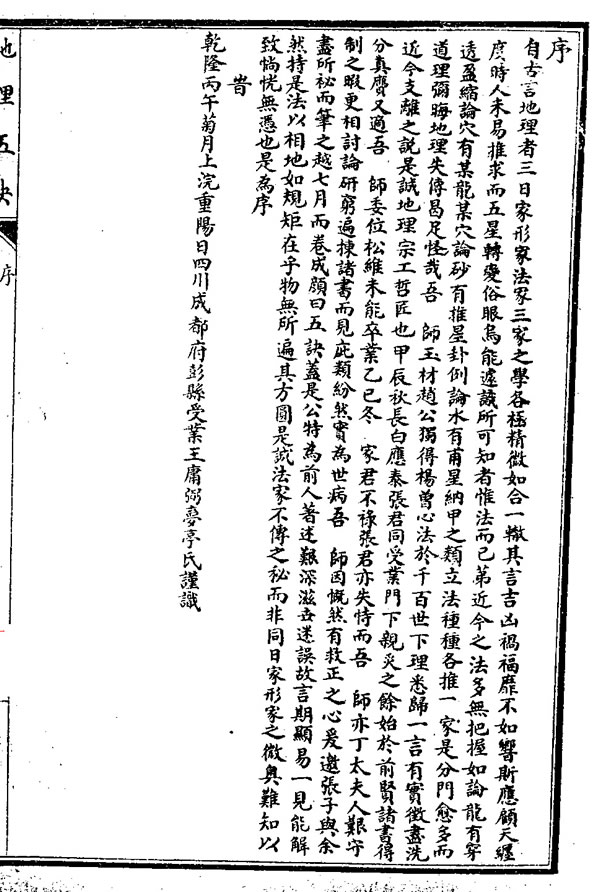 序
自古言地理者三日家形家法家三家之學各極精微如合一轍其言吉凶禍福靡不如響斯應顧天經
度時人未易推求而五星轉變俗眼烏能遽識所可知者惟法而已第近今之法多無把握如論龍有穿
透盈縮論穴有某龍某穴論砂有推星卦例論水有甫星納甲之類立法種種各推一家是分門愈多而
道理彌晦地理失傳曷足怪哉吾 師玉材趙公獨得楊曾心法於千百世下理悉歸一言有實徵盡洗
近今支離之說是誠地理宗工哲匠也甲辰秋長白應泰張君同受業門下親炙之餘始於前賢諸書得
分真贗又適吾 師委位松維未能卒業乙巳冬 家君不祿張君亦失恃而吾 師亦丁太夫人艱守
制之暇更相討論研窮遍揀諸書而見疵類紛然實為世病吾 師因慨然有救正之心爰邀張子與余
盡所秘而筆之越七月而卷成顏曰五訣蓋是公特為前人著述艱深滋世迷誤故言期顯易一見能解
然持是法以相地如規矩在乎物無所遍其方圓是誠法家不傳之秘而非同日家形家之微奧難知以
致惝恍無憑也是為序
旹
乾隆丙午菊月上浣重陽日四川成都府彭縣受業王庸弼夢亭氏謹識
地理五訣
序